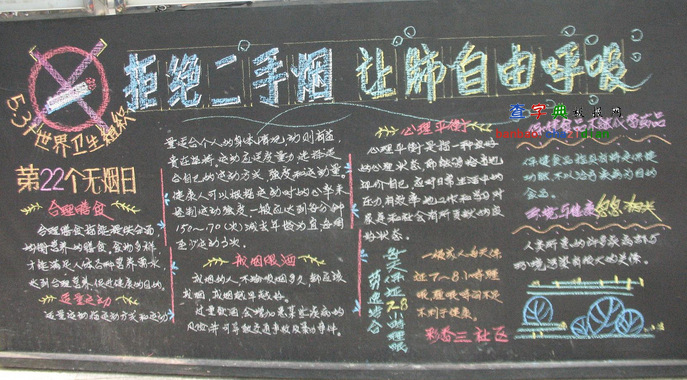 拒绝二手烟 让肺自由呼吸
5.31世界卫生组织
第22个无烟日
合理膳食
合理膳食指能提供全面
均衡营养的膳食,食物多样
才能满足人体各种营养需求,
达到合理营养,促进健康的目的。
适量运动
适量运动指运动方式和运动
量适合个人的身体情况,动则有益,
贵在坚持,运动应适度量力,选择适
合自己的运动方式,强度和运动量
健康人可以根据运动时的心率来
控制运动强度,一般应达到每分钟
150~170(次)减去年龄为宜,每周
戒烟限酒
戒烟的人,不论吸烟多久,都应该
戒烟,戒烟越早越好。
过量饮酒,会增加患某些疾病的
风险,并可导致交通事故及暴力事件。
心理平衡
心理平衡是指一种良好
的心理状态,即能够恰当地
评价自己,应对日常生活中的
压力,有效率地工作和学习,对
家庭和社会有所贡献的良
好状态。
劳逸结合
每天保证7-8小时睡眠
一般成人每天保
证7-8小时睡
不利于健康。
彩香三社区
查字典
保健食品指具有特定保健
功能,不以治疗疾病为目的
食品。
环境与健康息息相关